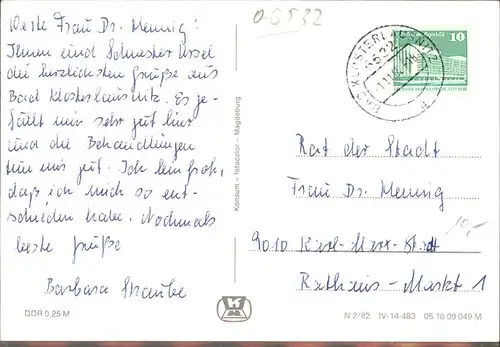 O-6532
Werte Frau Dr. Mennig!
Ihnen und Schwester Ursel
die herzlichsten Grüße aus
Bad Klosterlausnitz. Es ge-
fällt mir sehr gut hier
und die Behandlungen
tun mir gut. Ich bin froh,
daß ich mich so ent-
schieden habe. Nochmals
beste Grüße
Barbara Straube
DDR 0,25 M
Konsum - fotocolor - Magdeburg
BAD KLOSTERLAUSNITZ
6532
a
10
Rat der Stadt
Frau Dr. Mennig
10,-
9010 Karl-Marx-Stadt
Rathaus-Markt 1
N 2/82 IV-14-483 05 10 09 049 M